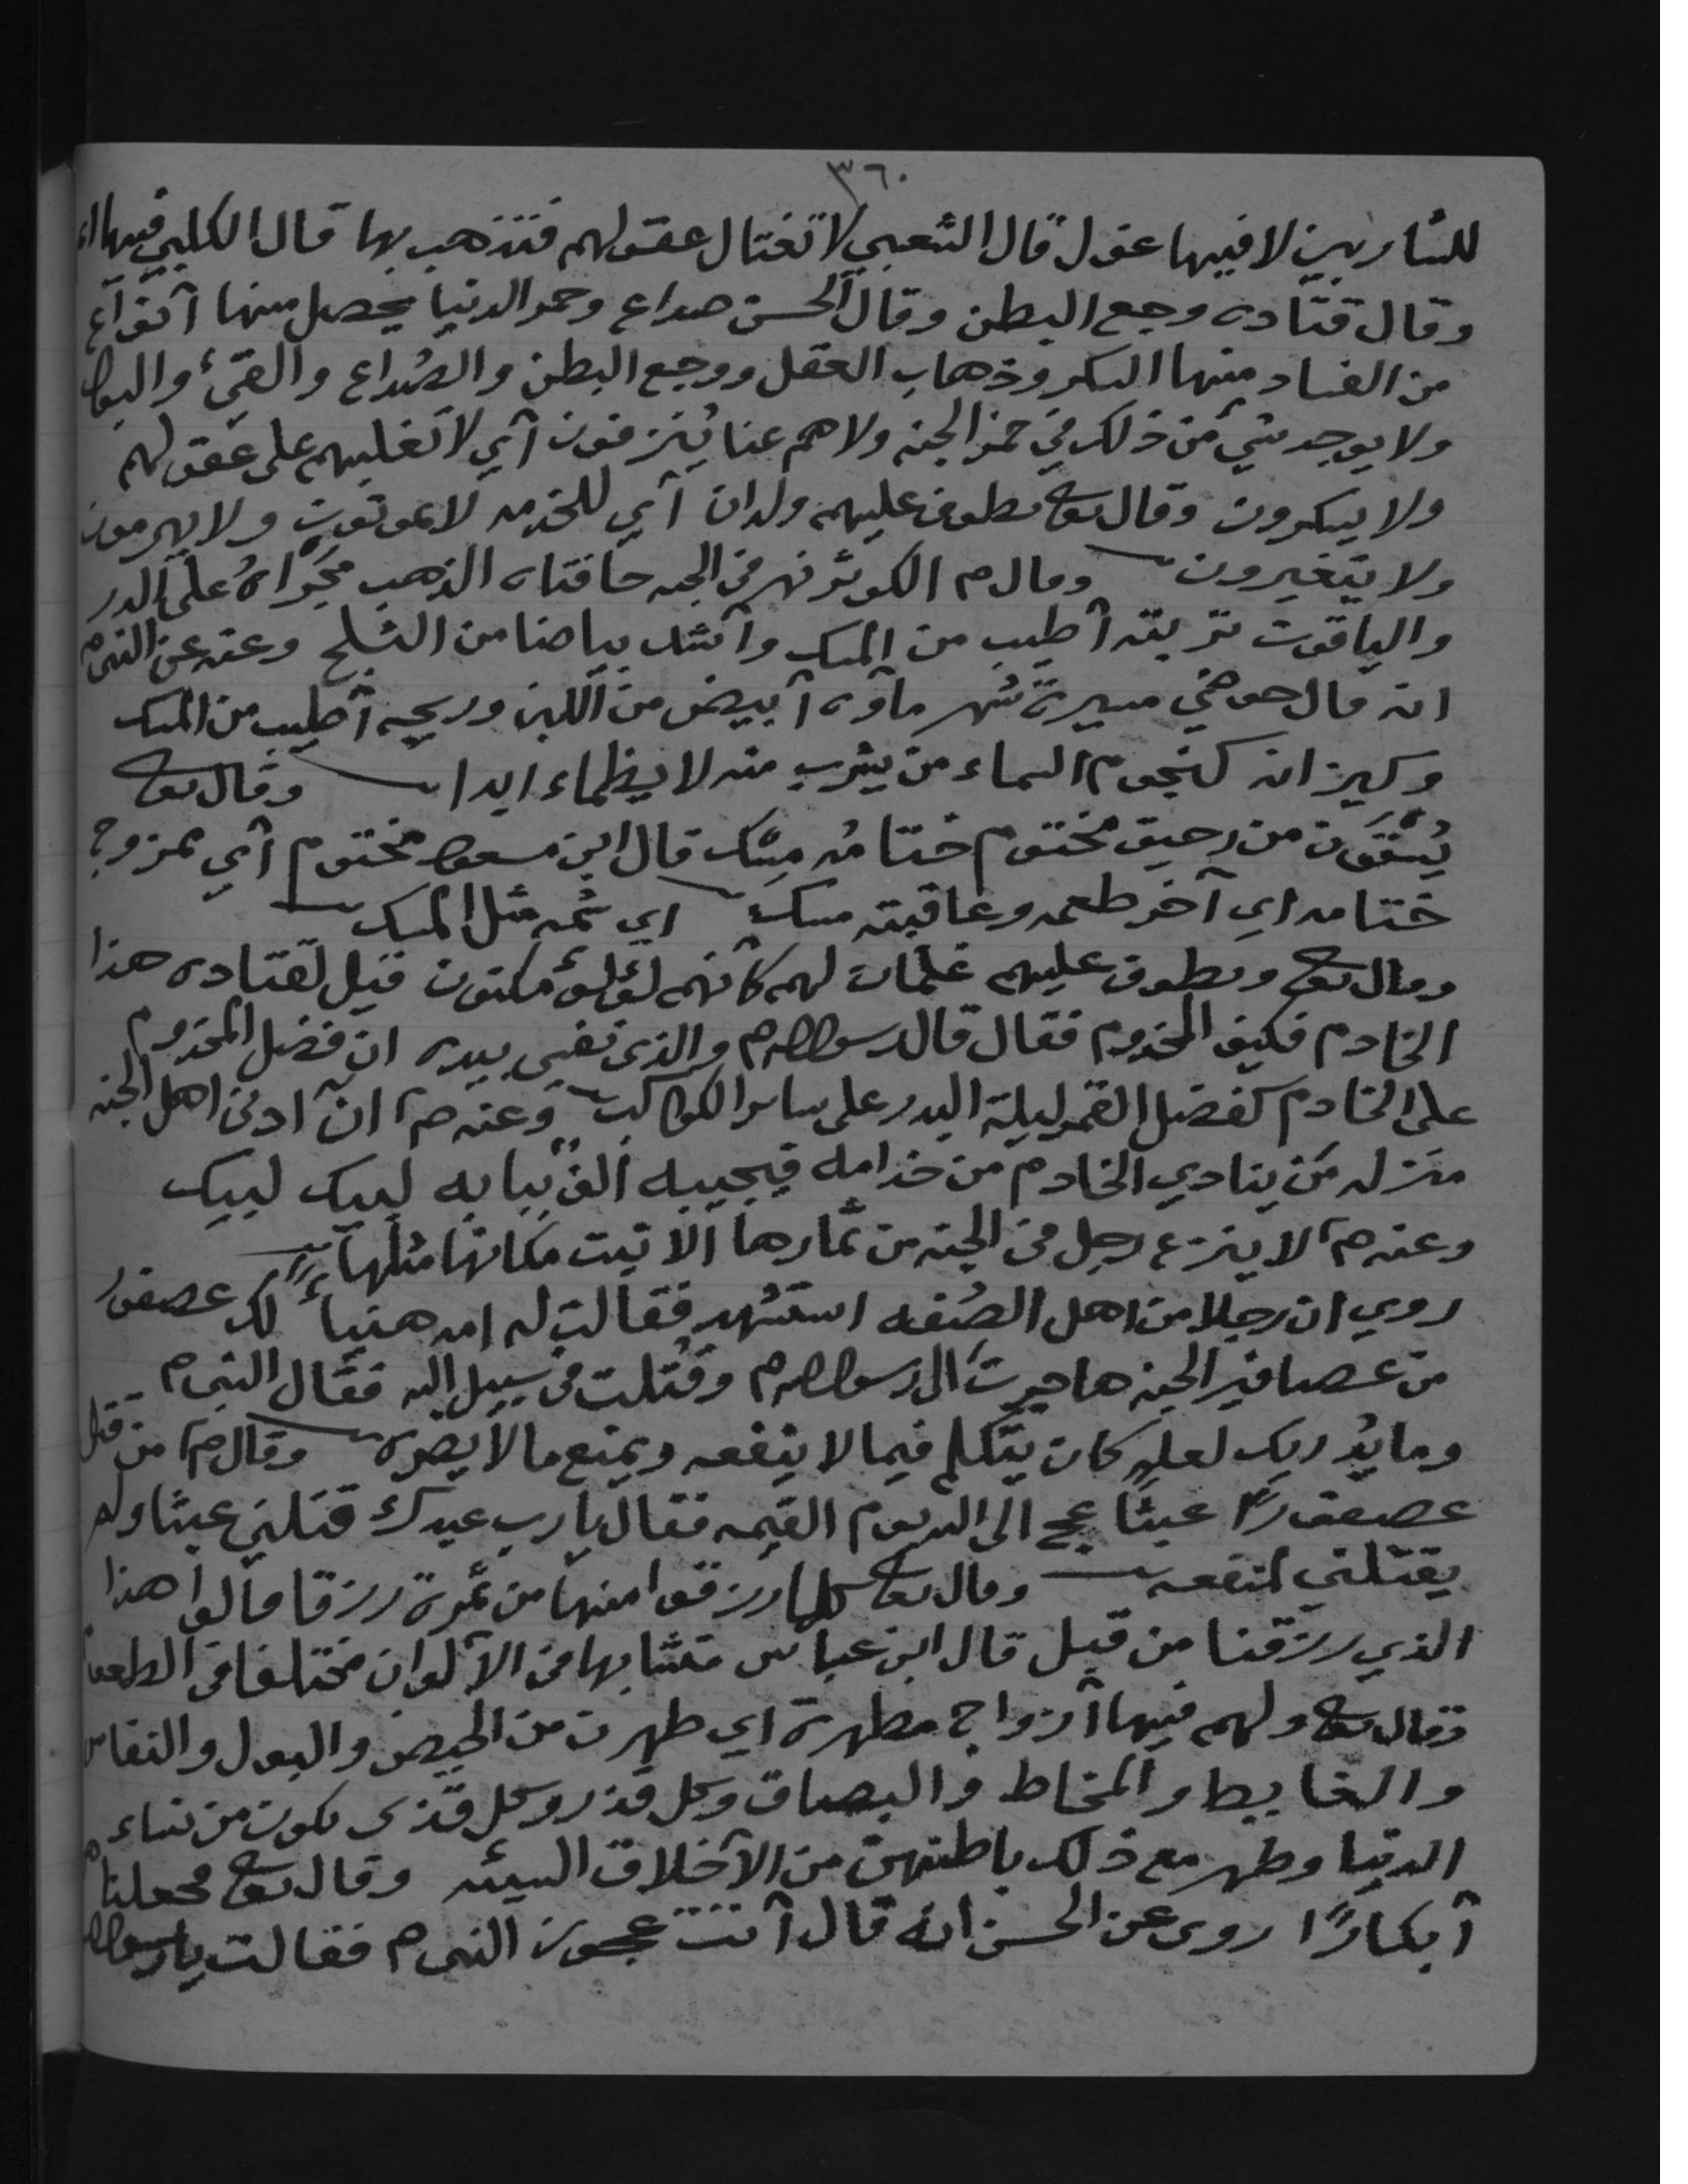 ٣٦٠
للشاربين لا فيها غول قال الشعبي لا تغتال عقولهم فتذهب بها قال الكلبي فيها
وقال قتاده وجع البطن وقال الحسن صداع وخمر الدنيا يحصل منها آنواع
من الفساد منها السكر وذهاب العقل ووجع البطن والصُداع والقيء والبول
ولا يوجد شيء من ذلك في خمر الجنه ولا هم عنا يُنزفون آي لا تغلبهم على عقولهم
ولا يسكرون وقال تعا يطوف عليهم ولدان آي للخدمه لا يموتون ولا يهرمون
ولا يتغيرون وقال م الكوثر نهر في الجنه حافتاه الذهب مجراهُ على الدر
والياقوت تربته آطيب من المسك وآشد بياضا من الثلج وعنه عن النبي م
انه قال حوضي مسيرة شهر مآوه آبيض من اللبن وريحه آطيب من المسك
وكيزانه كنجوم السماء من يشرب منه لا يظماء ابدا وقال تعا
يُسْقَون من رحيق مختوم ختامُه مِسك قال ابن مسعود مختوم آي ممزوج
ختامه اي آخر طعمه وعاقبته مسك اي شمه مثل المسك
وقال تعا ويطوف عليهم غلمان لهم كآنهم لؤلؤ مكنون قيل لقتاده هذا
الخادم فكيف المخدوم فقال قال رسول الله م والذي نفسي بيده ان فضل المخدوم
على الخادم كفضل القمر ليلة البدر على ساير الكواكب وعنه م ان آدنى اهل الجنه
منزله من ينادي الخادم من خدامه فيجيبه الف ببابه لبيك لبيك
وعنه م لا ينزع رجل في الجنه من ثمارها الا نبت مكانها مثلها
روي ان رجلا من اهل الصُفه استشهد فقالت له امه هنيا لك عصفور
من عصافير الجنه هاجرت الى رسول الله م وقُتلت في سبيل الله فقال النبي م
وما يُدريك لعله كان يتكلم فيما لا ينفعه ويمنع ما لا يضره وقال م من قتل
عصفورًا عبثًا عج الى الله يوم القيمه فقال يا رب عبدك قتلني عبثا ولم
يقتلني لمنفعه وقال تعا كلما رزقوا منها من ثمرة رزقا قالوا هذا
الذي رزقنا من قبل قال ابن عباس متشابها في الآلوان مختلفا في الطعم
وقال تعا ولهم فيها آزواج مطهرة اي طهرن من الحيض والبول والنفاس
والغايط والمخاط والبصاق وكل قذر وكل قذى يكون من نساء
الدنيا وطهر مع ذلك باطنهن من الآخلاق السيئه وقال تعا فجعلناهن
آبكارًا روى عن الحسن انه قال آتت عجوز النبي م فقالت يا رسول الله